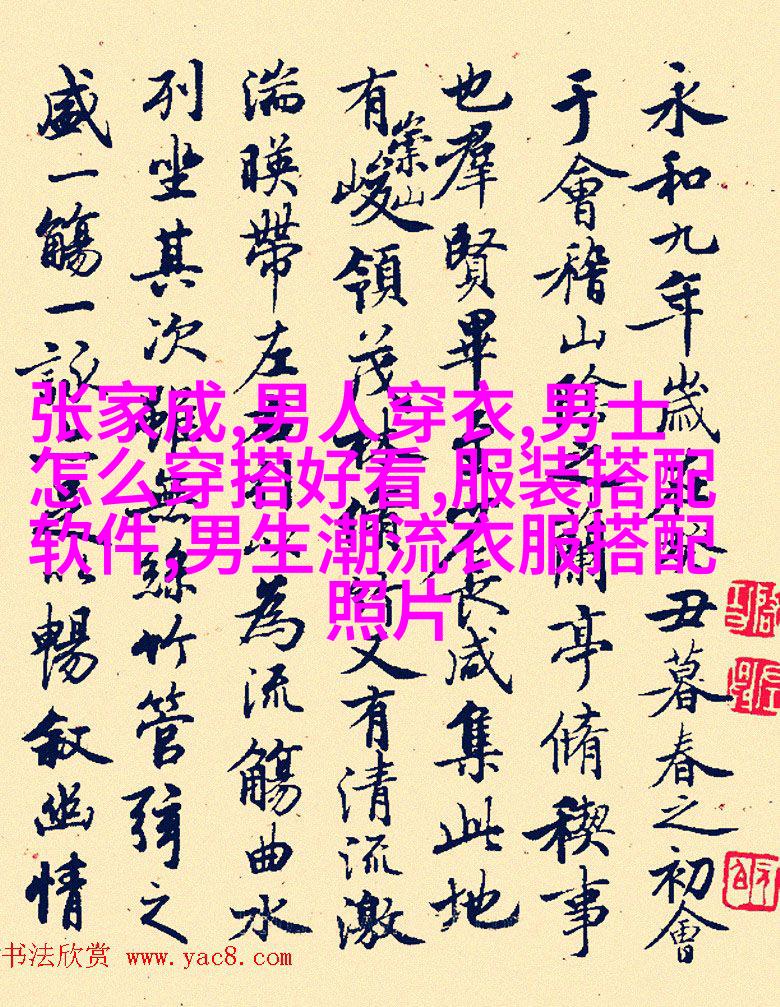 永和九年歲在癸丑暮春之初會
于會稽山陰之蘭亭脩稧事
也羣賢畢至少長咸集此地
有崇山峻領茂林脩竹又有清流激
湍暎帶左右引以為流觴曲水
列坐其次雖無絲竹管弦之
盛一觴一詠亦足以暢叙幽情
张家成,男人穿衣,男士
怎么穿搭好看,服装搭配
软件,男生潮流衣服搭配
照片
书法欣赏 www.yac8.com